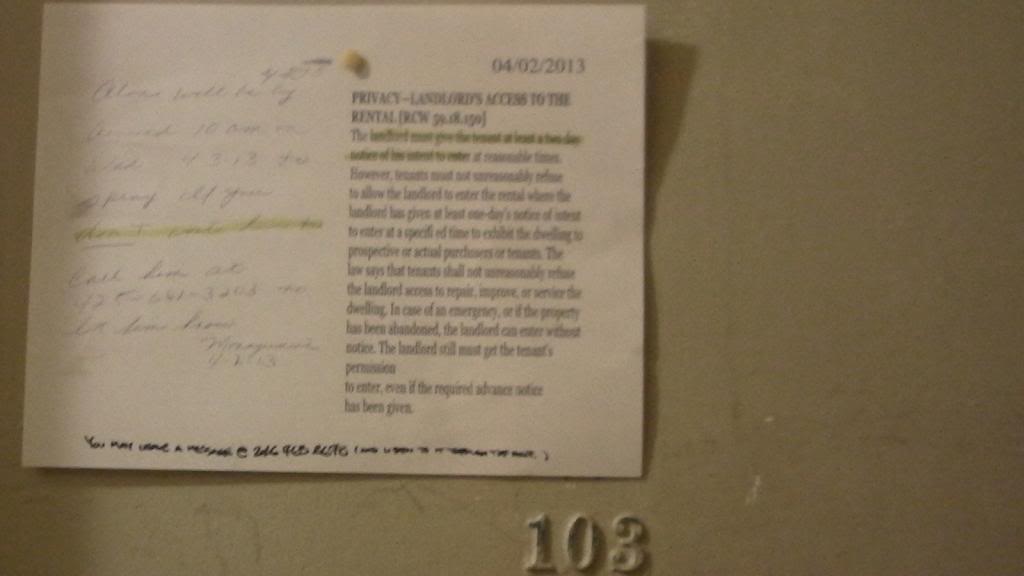 04/02/2013
PRIVACY–LANDLORD'S ACCESS TO THE
RENTAL [RCW 59.18.150]
The landlord must give the tenant at least a two-day
notice of his intent to enter at reasonable times.
However, tenants must not unreasonably refuse
to allow the landlord to enter the rental where the
landlord has given at least one-day's notice of intent
to enter at a specifi ed time to exhibit the dwelling to
prospective or actual purchasers or tenants. The
law says that tenants shall not unreasonably refuse
the landlord access to repair, improve, or service the
dwelling. In case of an emergency, or if the property
has been abandoned, the landlord can enter without
notice. The landlord still must get the tenant's
permission
to enter, even if the required advance notice
has been given.
will be by
around 10 am on
Wed 4-3-13 to
spray if you
don't
Call him at
to
let him know
4-2-13
YOU MAY LEAVE A MESSAGE @
103